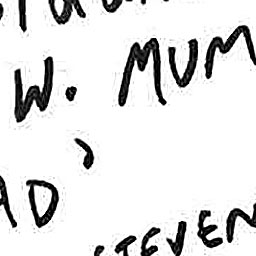 W. MUM
AD,
STEVEN